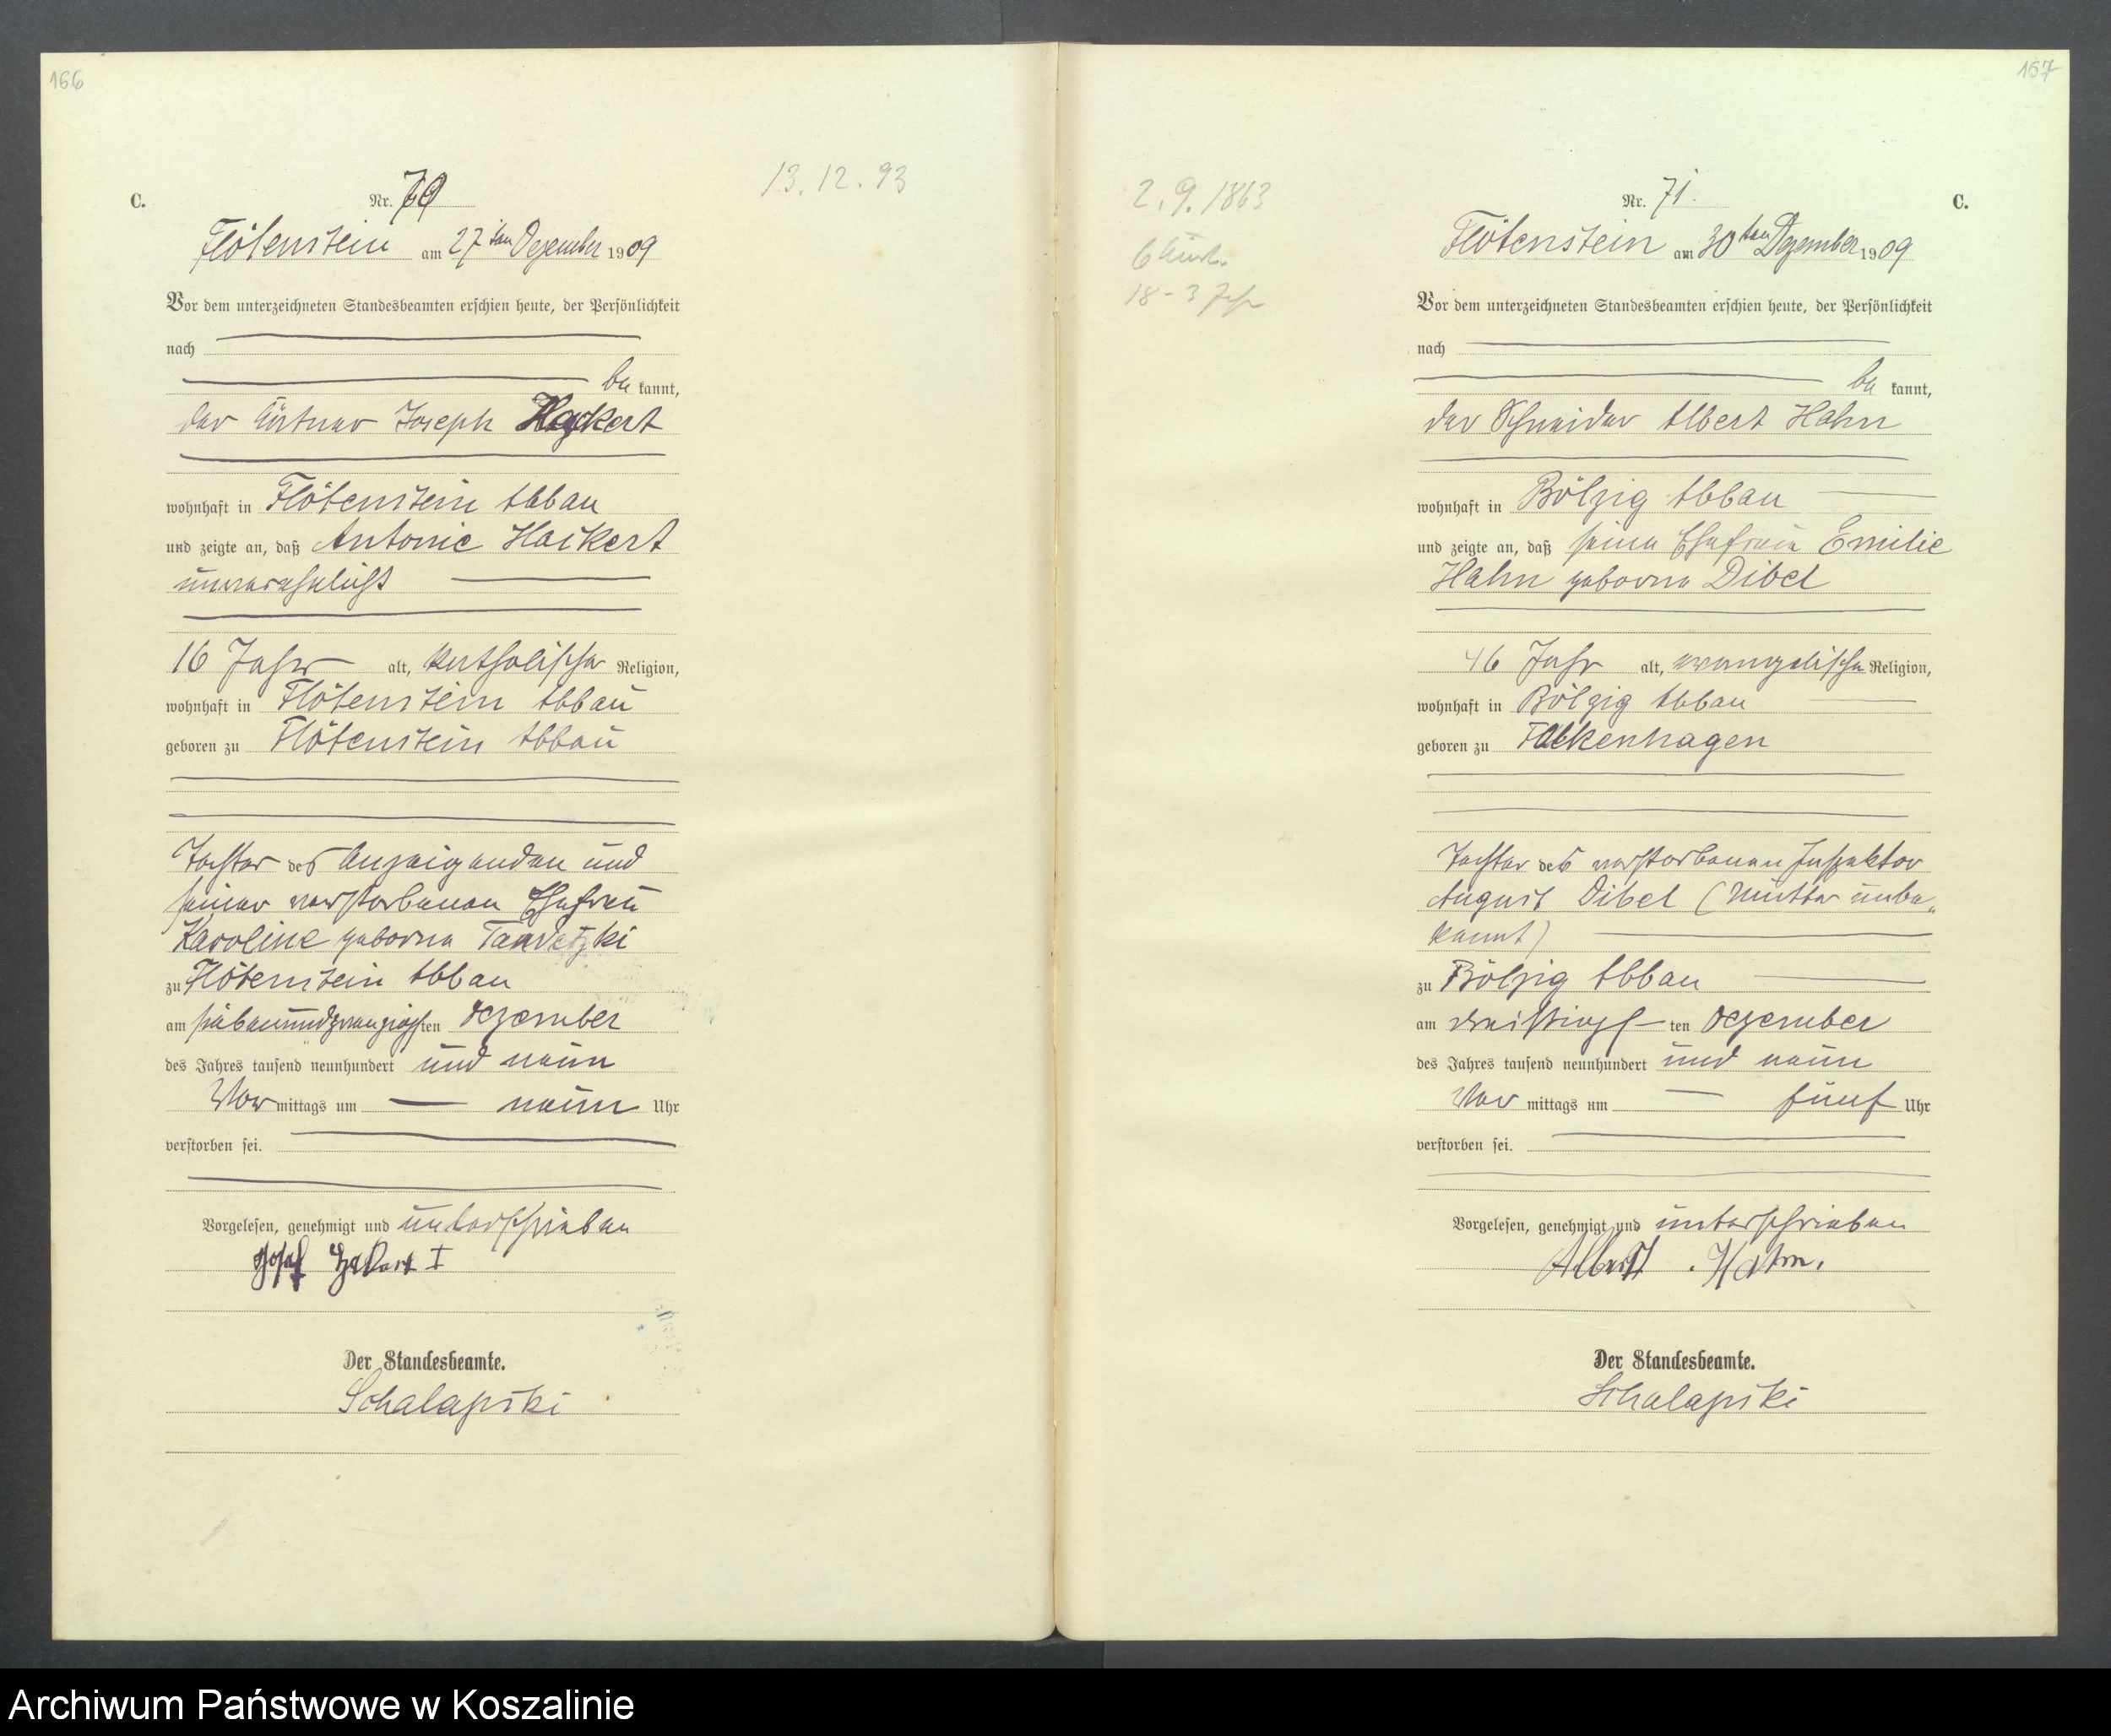 166
C.
Nr. 70
13.12.93
Flötenstein am 27ten Dezember 1909
Vor dem unterzeichneten Standesbeamten erschien heute, der Persönlichkeit
nach
be kannt,
der Joseph Hackert
wohnhaft in Flötenstein Abbau
und zeigte an, daß Antonie Hackert
unverehelicht
16 Jahr alt, katholischer Religion,
wohnhaft in Flötenstein Abbau
geboren zu Flötenstein Abbau
Tochter des Anzeigenden und
seiner verstorbenen Ehefrau
Karoline geborne
zu Flötenstein Abbau
am siebenundzwanzigsten Dezember
des Jahres tausend neunhundert und neun
Vor mittags um neun Uhr
verstorben sei.
Vorgelesen, genehmigt und unterschrieben
Josef Hakert I
Der Standesbeamte.
Schalapski
167
C.
2.9.1863
6 Kind.
18-3 Jahr
Nr. 71.
Flötenstein am 30ten Dezember 1909
Vor dem unterzeichneten Standesbeamten erschien heute, der Persönlichkeit
nach
be kannt,
der Schneider Albert Hahn
wohnhaft in Bölzig Abbau
und zeigte an, daß seine Ehefrau Emilie
Hahn geborne Dibel
46 Jahr alt, evangelischer Religion,
wohnhaft in Bölzig Abbau
geboren zu Falkenhagen
Tochter des verstorbenen Inspektor
August Dibel (Mutter unbe„
kannt)
zu Bölzig Abbau
am dreißigs ten Dezember
des Jahres tausend neunhundert und neun
Vor mittags um fünf Uhr
verstorben sei.
Vorgelesen, genehmigt und unterschrieben
Albert Hahn.
Der Standesbeamte.
Schalapski
Archiwum Państwowe w Koszalinie